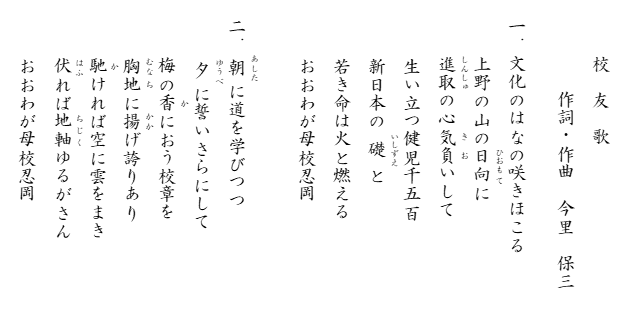 校友歌
作詞・作曲　今里　保三
一．文化のはなの咲きほこる
上野の山の日向に
進取の心気負いして
生い立つ健児千五百
新日本の礎と
若き命は火と燃える
おおわが母校忍岡
二．朝に道を学びつつ
夕に誓いさらにして
梅の香におう校章を
胸地に揚げ誇りあり
馳ければ空に雲をまき
伏れば地軸ゆるがさん
おおわが母校忍岡